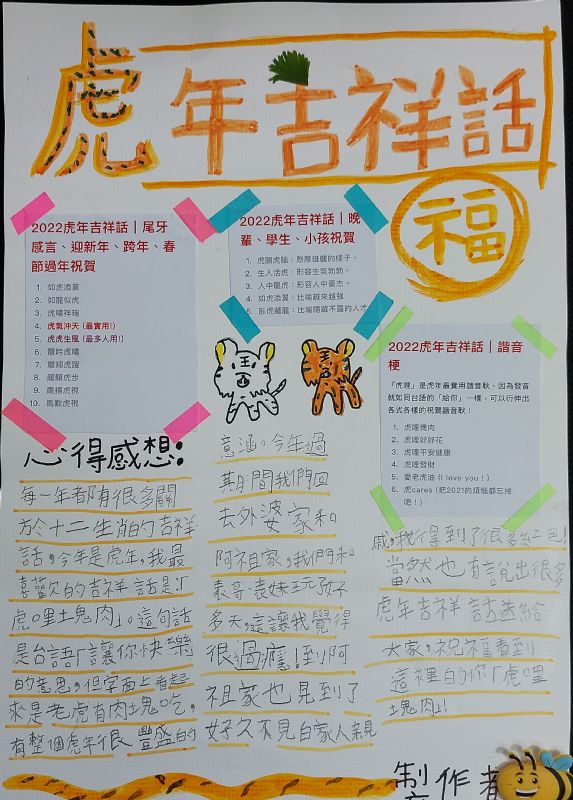 虎年吉祥話
福
2022虎年吉祥話｜尾牙
感言、迎新年、跨年、春
節過年祝賀
1. 如虎添翼
2. 如龍似虎
3. 虎嘯祥瑞
4. 虎氣沖天 (最實用!)
5. 虎虎生風 (最多人用!)
6. 龍吟虎嘯
7. 龍翔虎躍
8. 龍驤虎步
9. 鷹揚虎視
10. 鳳歎虎視
2022虎年吉祥話｜晚
輩、學生、小孩祝賀
1. 虎頭虎腦：憨厚雄健的樣子。
2. 生人活虎：形容生氣勃勃。
3. 人中龍虎：形容人中豪杰。
4. 如虎添翼：比喻越來越強
5. 臥虎藏龍：比喻隱藏不露的人才
2022虎年吉祥話｜諧音
梗
「虎哩」是虎年最實用諧音耿，因為發音
就如同台語的「給你」一樣，可以行伸出
各式各樣的祝賀諧音耿！
1. 虎哩塊肉
2. 虎哩好好花
3. 虎哩平安健康
4. 虎哩發財
5. 愛老虎油 (I love you！)
6. 虎cares (把2021的煩惱都忘掉
吧！)
心得感想：
每一年都有很多關
於十二生肖的吉祥
話，今年是虎年，我最
喜歡的吉祥話是「
虎哩塊肉」。這句話
是台語「讓你快樂
的意思，但字面上看起
來是老虎有肉塊吃，
有整個虎年很豐盛的
意涵。今年過
期間我們回
去外婆家和
阿祖家，我們和
表哥表妹玩了好
多天，這讓我覺得
很過癮！到阿
祖家也見到了
好久不見自家人親
戚，我得到了很多紅包！
當然也有說出很多
虎年吉祥話送給
大家，祝福看到
這裡的你「虎哩
塊肉」！
製作者